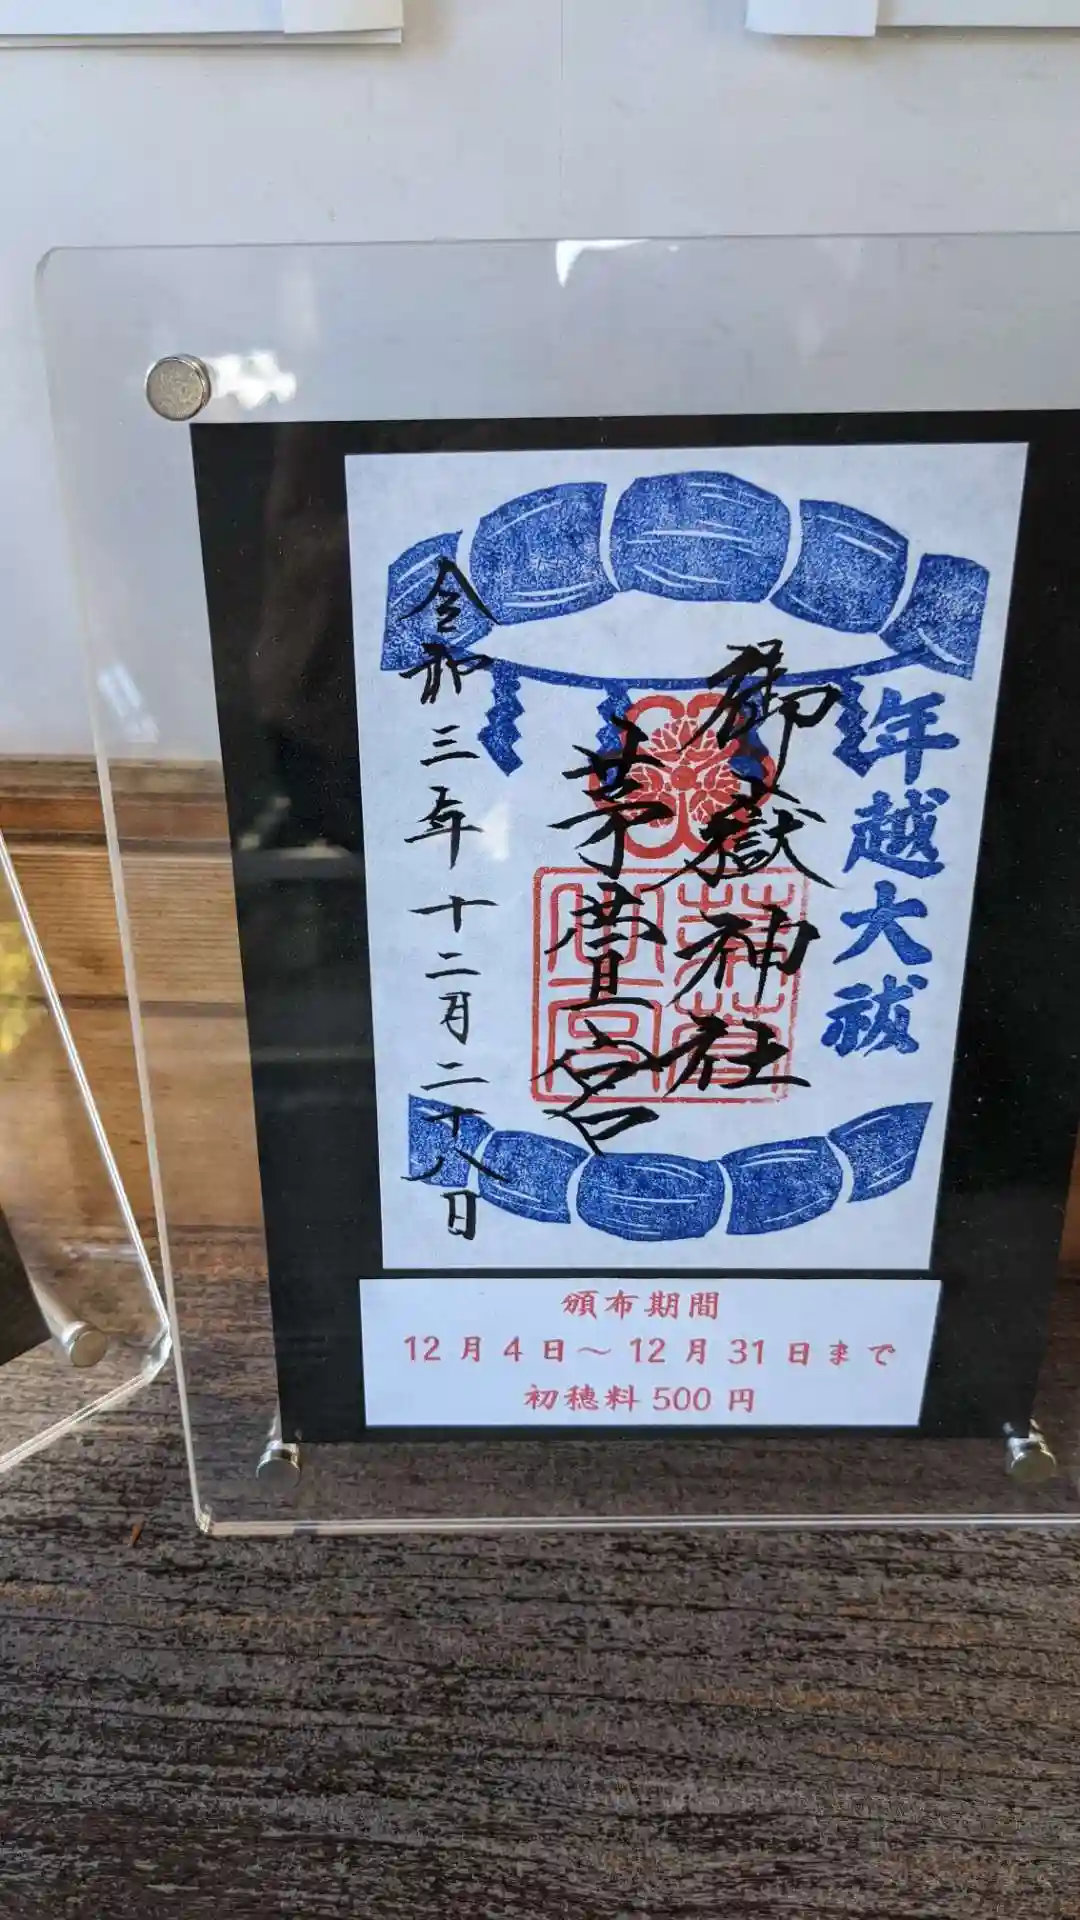 年越大祓
御嶽神社
茅萱宮
令和三年十二月二十八日
頒布期間
12月4日～12月31日まで
初穂料500円